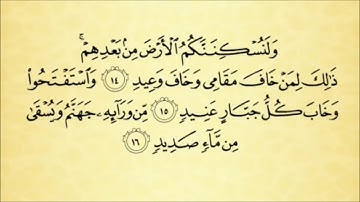 وَلَنُسْكِنَنَّكُمُ ٱلْأَرْضَ مِنۢ بَعْدِهِمْ ۚ
ذَٰلِكَ لِمَنْ خَافَ مَقَامِى وَخَافَ وَعِيدِ ١٤ وَٱسْتَفْتَحُوا۟
وَخَابَ كُلُّ جَبَّارٍ عَنِيدٍ ١٥ مِّن وَرَآئِهِۦ جَهَنَّمُ وَيُسْقَىٰ
مِن مَّآءٍ صَدِيدٍ ١٦